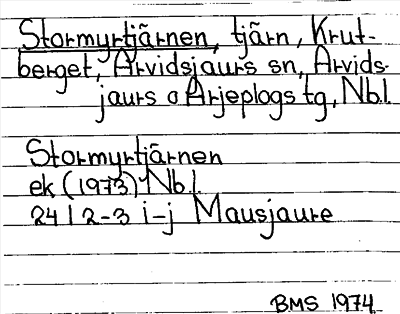 Stormyrtjärnen, tjärn, Krut-
berget, Arvidsjaurs sn, Arvids-
jaurs o Arjeplogs tg, Nbl.
Stormyrtjärnen
ek (1973) Nbl.
24 I 2-3 i-j Mausjaure
BMS 1974